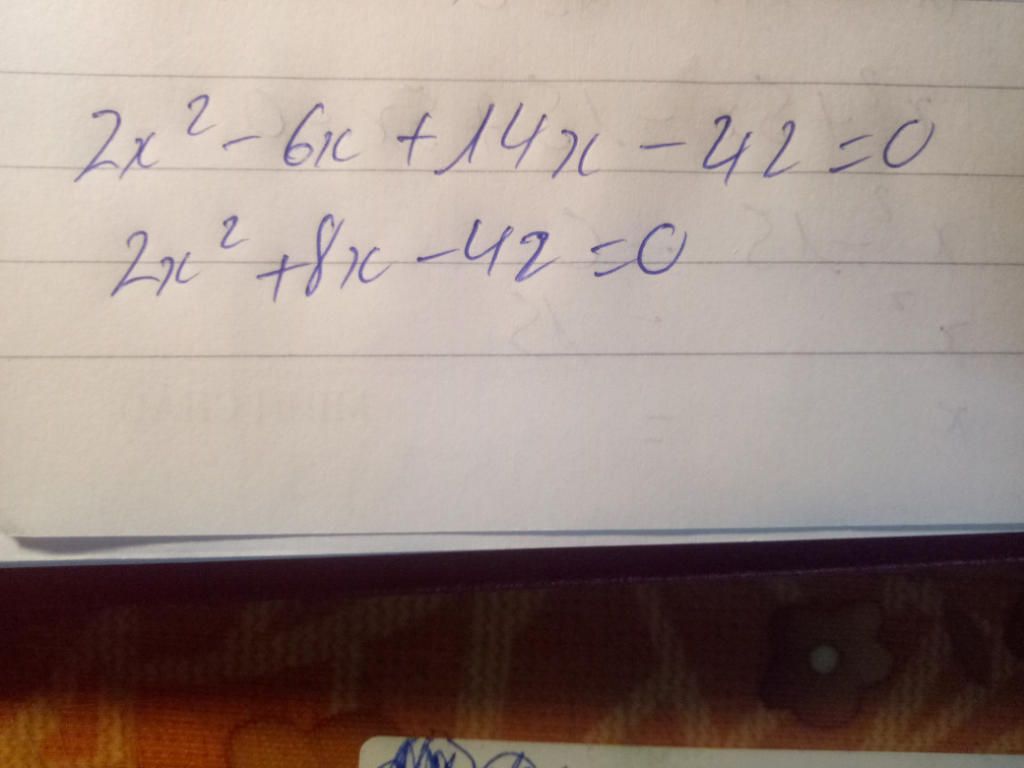 2x² - 6x + 14x - 42 = 0
2x² + 8x - 42 = 0